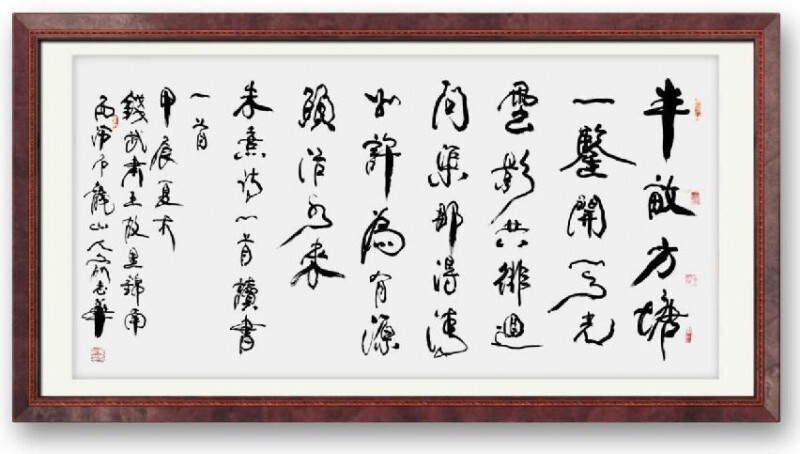 半畝方塘
一鑒開天光
雲影共徘徊
問渠那得清
如許為有源
頭活水來
朱熹詩一首讀書
一首
甲辰夏於
錢武肅王故里錦南
龍山人志華